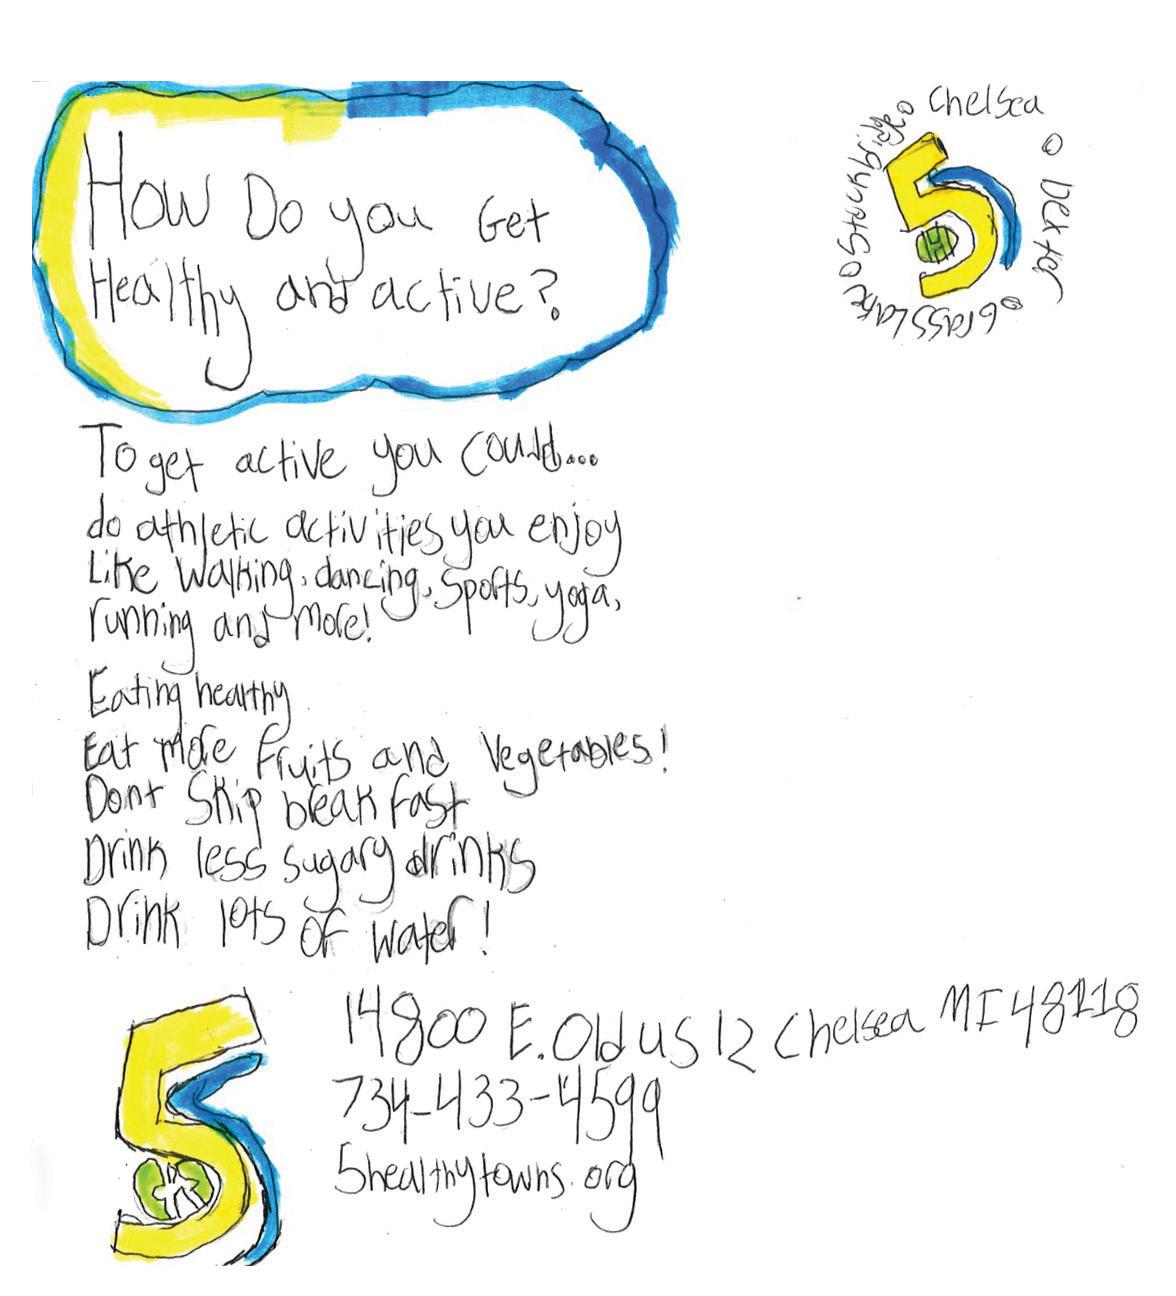 How Do you Get
Healthy and active?
Chelsea
o Dexter
o Grass Lake
o Stockbridge o
5
To get active you could...
do athletic activities you enjoy
Like walking, dancing, sports, yoga,
running and more!
Eating healthy
Eat more fruits and vegetables!
Dont Skip breakfast
Drink less sugary drinks
Drink lots of water!
5
14800 E. Old US 12 Chelsea MI 48118
734-433-4599
5healthytowns.org